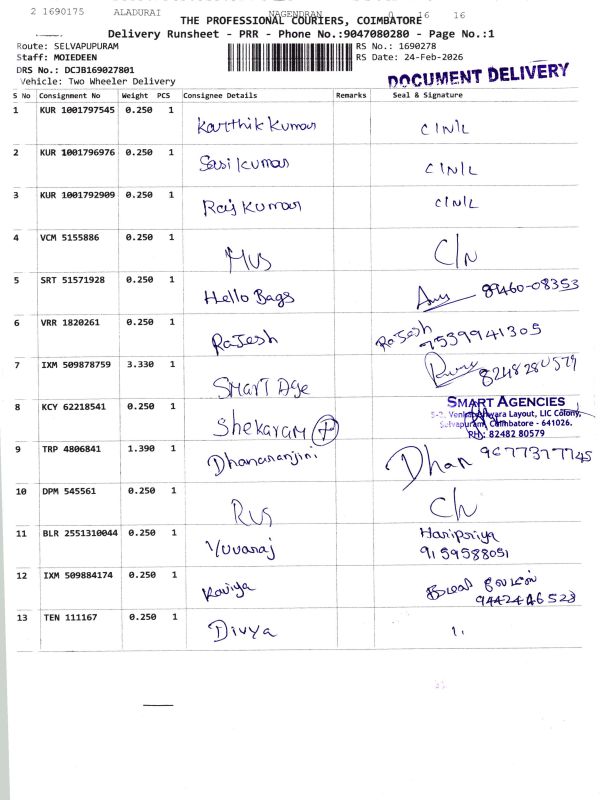 2 1690175 ALADURAI NAGENDRAN 16 16
THE PROFESSIONAL COURIERS, COIMBATORE
Delivery Runsheet - PRR - Phone No.:9047080280 - Page No.:1
Route: SELVAPUPURAM RS No.: 1690278
Staff: MOIEDEEN RS Date: 24-Feb-2026
DRS No.: DCJB169027801
Vehicle: Two Wheeler Delivery DOCUMENT DELIVERY
S No Consignment No Weight PCS Consignee Details Remarks Seal & Signature
1 KUR 1001797545 0.250 1 Karthik Kumar C/N/L
2 KUR 1001796976 0.250 1 Sasi Kumar C/N/L
3 KUR 1001792909 0.250 1 Raj Kumar C/N/L
4 VCM 5155886 0.250 1 C/N
5 SRT 51571928 0.250 1 Hello Bags 89460-08353
6 VRR 1820261 0.250 1 RaJesh RaJesh
7539941305
7 IXM 509878759 3.330 1 Smart Age 8248280579
8 KCY 62218541 0.250 1 Shekaram SMART AGENCIES
Layout, LIC Colony,
Selvapuram, Coimbatore - 641026.
PH: 82482 80579
9 TRP 4806841 1.390 1 Dhanaranjini Dhan 9677377745
10 DPM 545561 0.250 1
11 BLR 2551310044 0.250 1 Yuvaraj Haripriya
9159588051
12 IXM 509884174 0.250 1 Kaviya
9442446523
13 TEN 111167 0.250 1 Divya